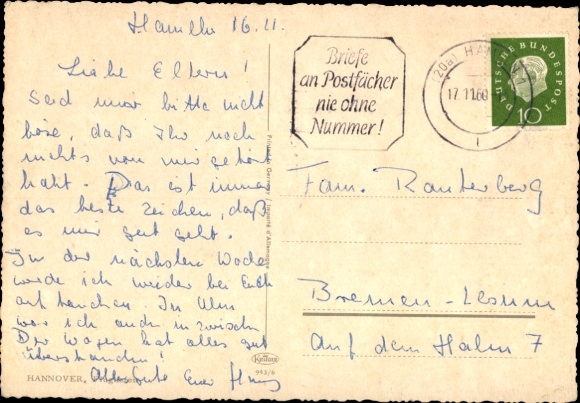 Hameln 16.11.
Liebe Eltern!
Seid mir bitte nicht
böse, daß Ihr noch
nichts von mir gehört
habt. Das ist immer
das beste Zeichen, daß
es mir gut geht.
In der nächsten Woche
werde ich wieder bei Euch
auftauchen. In Ulm
war ich auch inzwischen
Der Wagen hat alles gut
überstanden!
Alles Gute Euer
HANNOVER,
Printed in Germany / Imprimé d'Allemagne
Krüger
943/6
Briefe
an Postfächer
nie ohne
Nummer!
(20a) HAN
17.11.60
DEUTSCHE BUNDESPOST
10
Fam. Rauterberg
Bremen-Lesum
Auf dem Halm 7